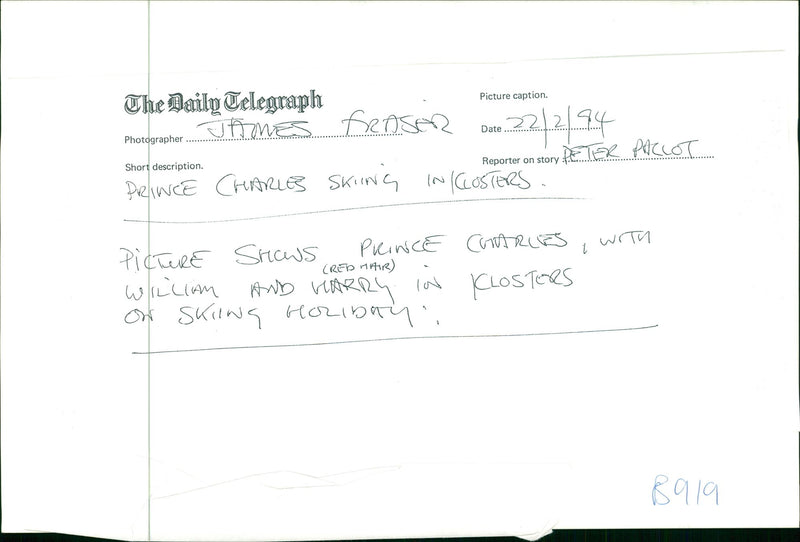 The Daily Telegraph
Picture caption.
Photographer JAMES FRASER
Date 22/2/94
Short description.
Reporter on story PETER PALLOT
PRINCE CHARLES SKIING IN KLOSTERS.
PICTURE SHOWS PRINCE CHARLES, WITH
(RED HAIR)
WILLIAM AND HARRY IN KLOSTERS
ON SKIING HOLIDAY.
B919